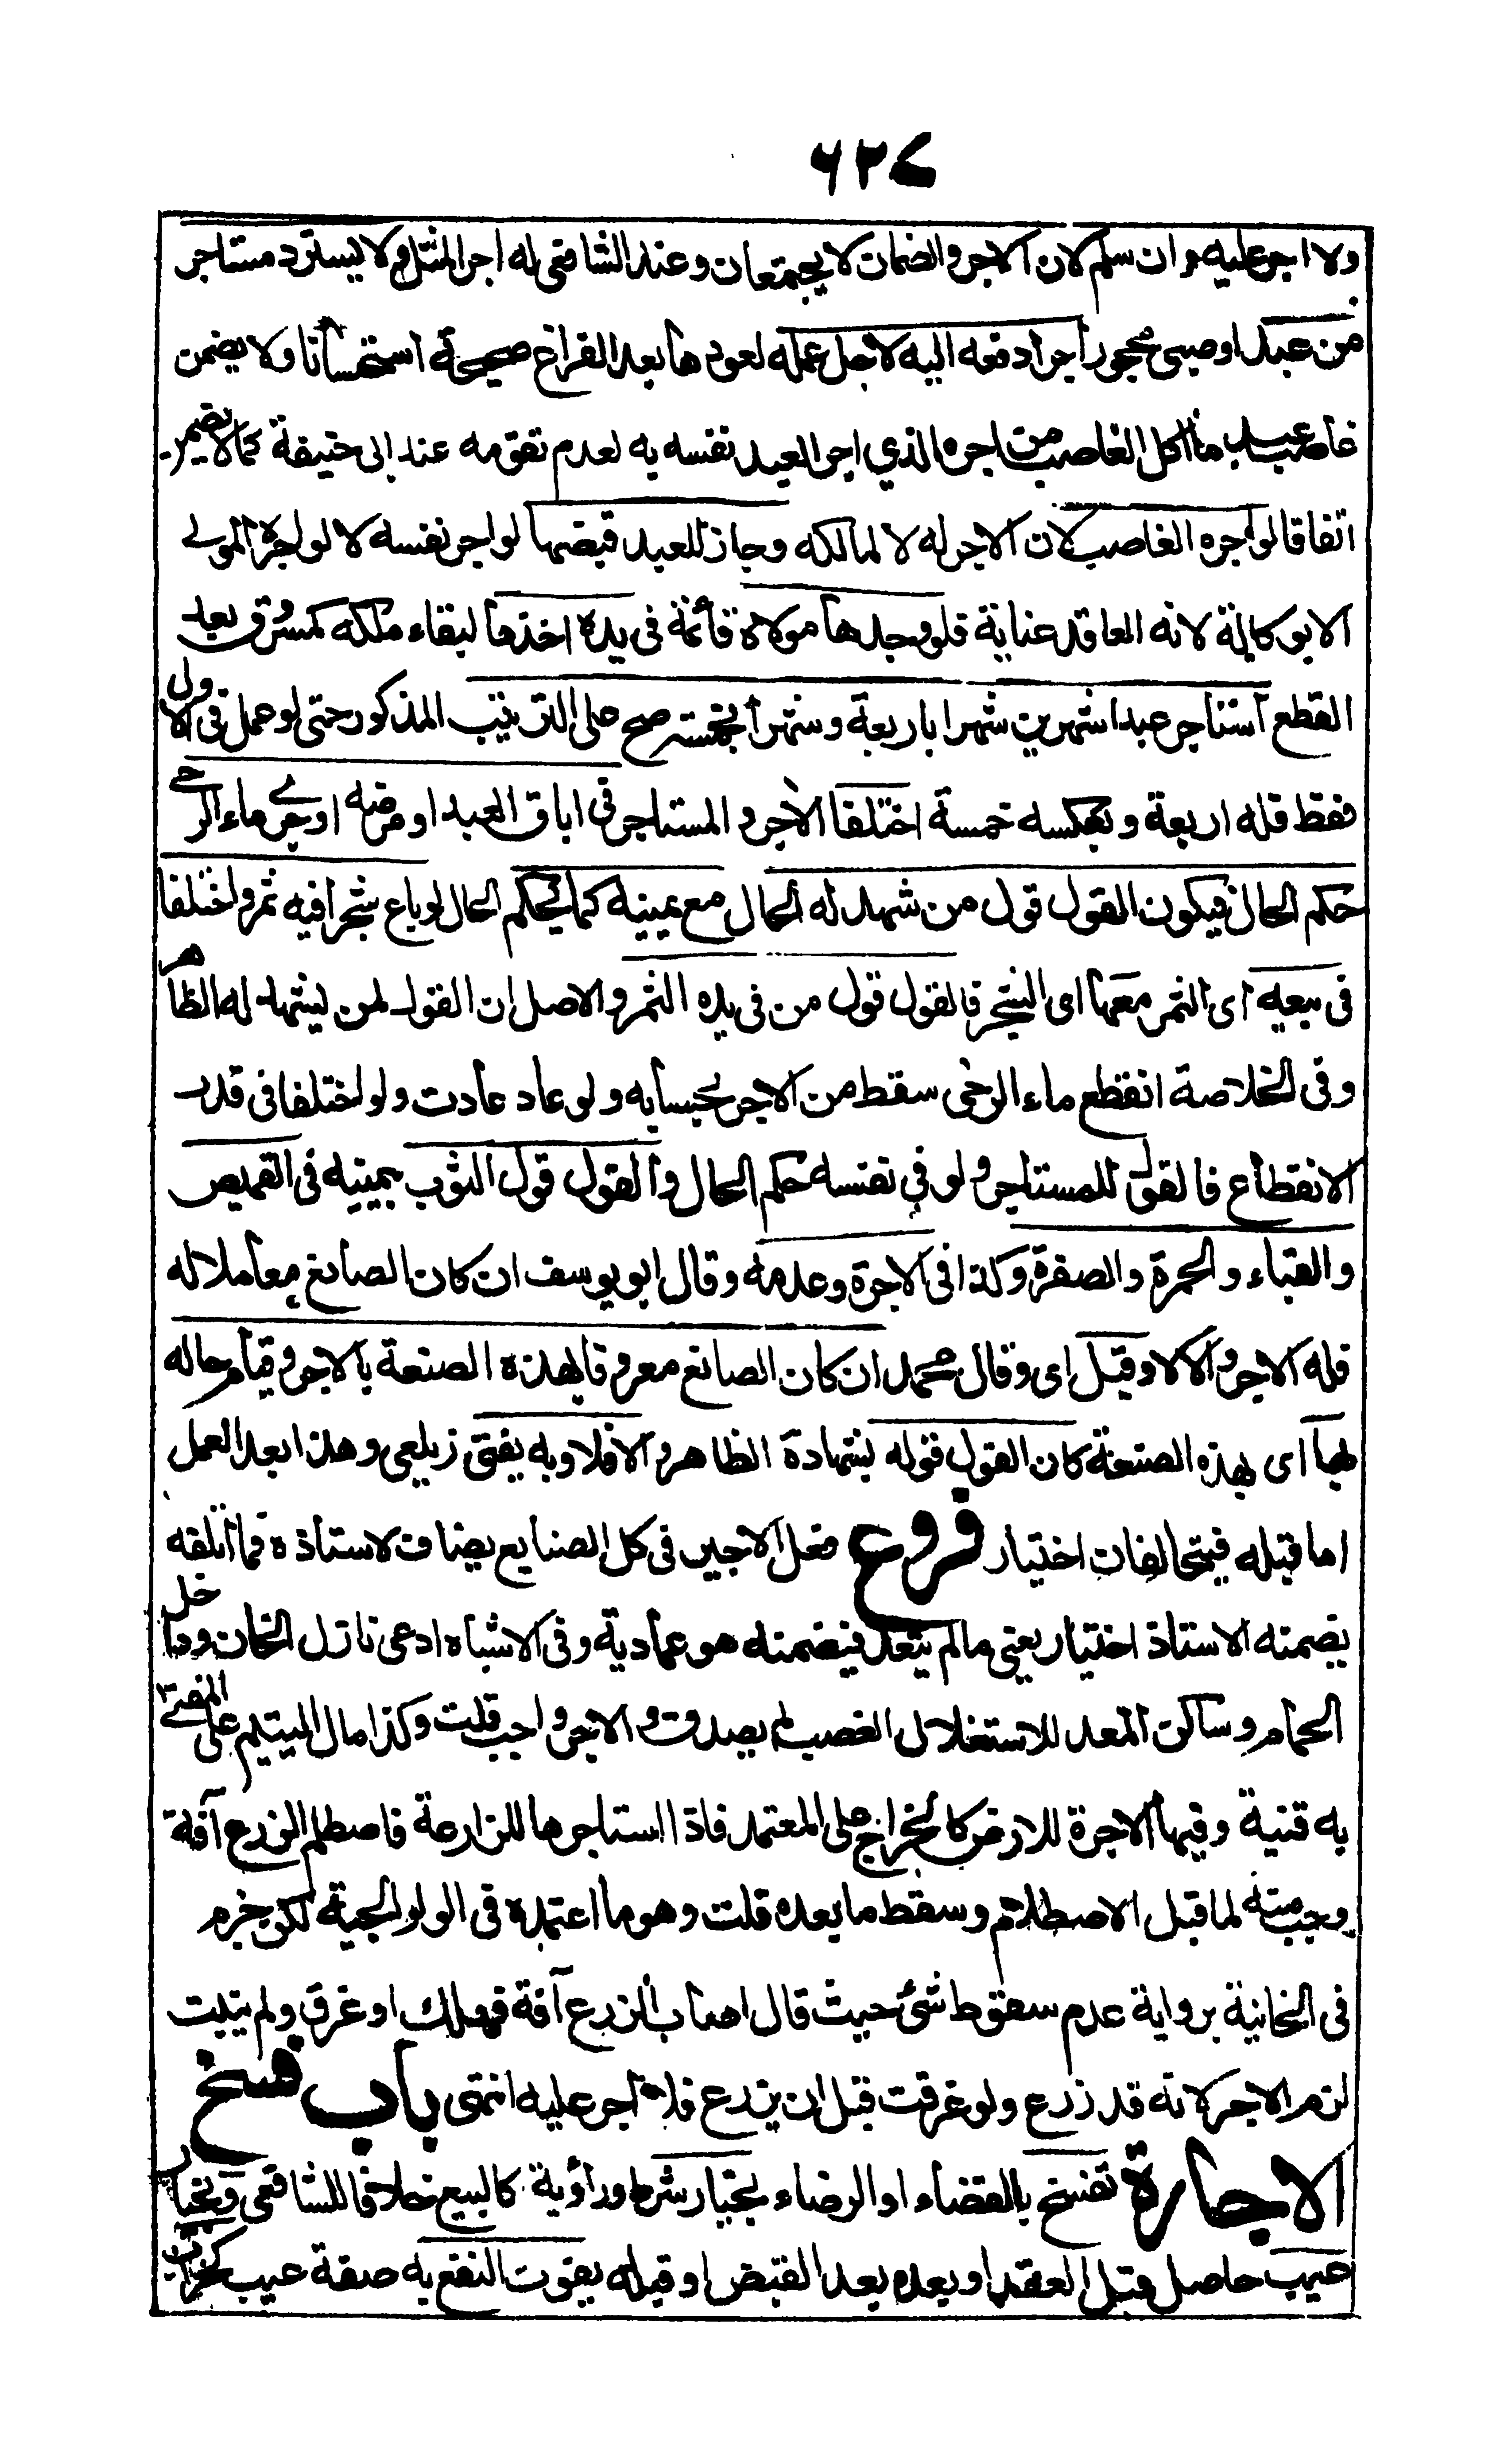 ٦٢٧
ولا اجر عليه وان سلم لان الاجر والضمان لا يجتمعان وعند الشافعي له اجر المثل ولا يسترد مستاجر
من عبد او صبي محجور أجرا دفعه اليه لاجل عمله لعودها بعد الفراغ صحيحة استحسانا ولا يضمن
غاصب عبد ما اكل الغاصب من اجره الذي اجر العبد نفسه به لعدم تقومه عند ابى حنيفة كما لا يضمن
اتفاقا لو اجره الغاصب لان الاجر له لا لمالكه وجاز للعبد قبضها لو اجر نفسه لا لو اجره المولى
الا بوكالة لانه العاقد عناية فلو وجدها مولاه قائمة في يده اخذها لبقاء ملكه كمسروق بعد
القطع استاجر عبدا شهرين شهرا باربعة وشهرا بخمسة صح على الترتيب المذكور حتى لو عمل في الاول
فقط فله اربعة وبعكسه خمسة اختلفا الآجر والمستاجر في اباق العبد او مرضه او جرى ماء الرحى
حكم الحال فيكون القول قول من شهد له الحال مع يمينه كما يحكم الحال لو باع شجرا فيه ثمر واختلفا
في بيعه اى الثمر معها اى الشجر فالقول قول من في يده الثمر والاصل ان القول لمن يشهد له الظاهر
وفى الخلاصة انقطع ماء الرحى سقط من الاجر بحسابه ولو عاد عادت ولو اختلفا في قدر
الانقطاع فالقول للمستاجر ولو في نفسه حكم الحال والقول قول الثوب بيمينه في القميص
والقباء والحمرة والصفرة وكذا في الاجرة وعدمه وقال ابو يوسف ان كان الصانع معاملا له
فله الاجر والا لا وقيل اى وقال محمد ان كان الصانع معروفا بهذه الصنعة بالاجر وقيام حاله
بها اى بهذه الصنعة كان القول قوله بشهادة الظاهر والا فلا وبه يفتى زيلعي وهذا بعد العمل
اما قبله فيتحالفان اختيار فروع فعل الاجير في كل الصنايع يضاف لاستاذه فما اتلفه
يضمنه الاستاذ اختيار يعني ما لم يتعد فيضمنه هو عمادية وفى الاشباه ادعى نازل الخان وداخل
الحمام وساكن المعد للاستغلال الغصب لم يصدق والاجر واجب قلت وكذا مال اليتيم على المفتى
به قنية وفيها الاجرة للارض كالخراج على المعتمد فاذا استاجرها للزارعة فاصطلم الزرع آفة
وجب منه لما قبل الاصطلام وسقط ما بعده قلت وهو ما اعتمده في الولوالجية لكن جزم
في الخانية برواية عدم سقوط شئ حيث قال اصاب الزرع آفة فهلك او غرق ولم ينبت
لزم الاجر لانه قد زرع ولو غرقت قبل ان يزرع فلا اجر عليه انتهى باب فسخ
الاجارة تفسخ بالقضاء او الرضاء بخيار شرط ورؤية كالبيع خلافا للشافعي وبخيار
عيب حاصل قبل العقد او بعده بعد القبض او قبله يفوت النفع به صفة عيب كخراب